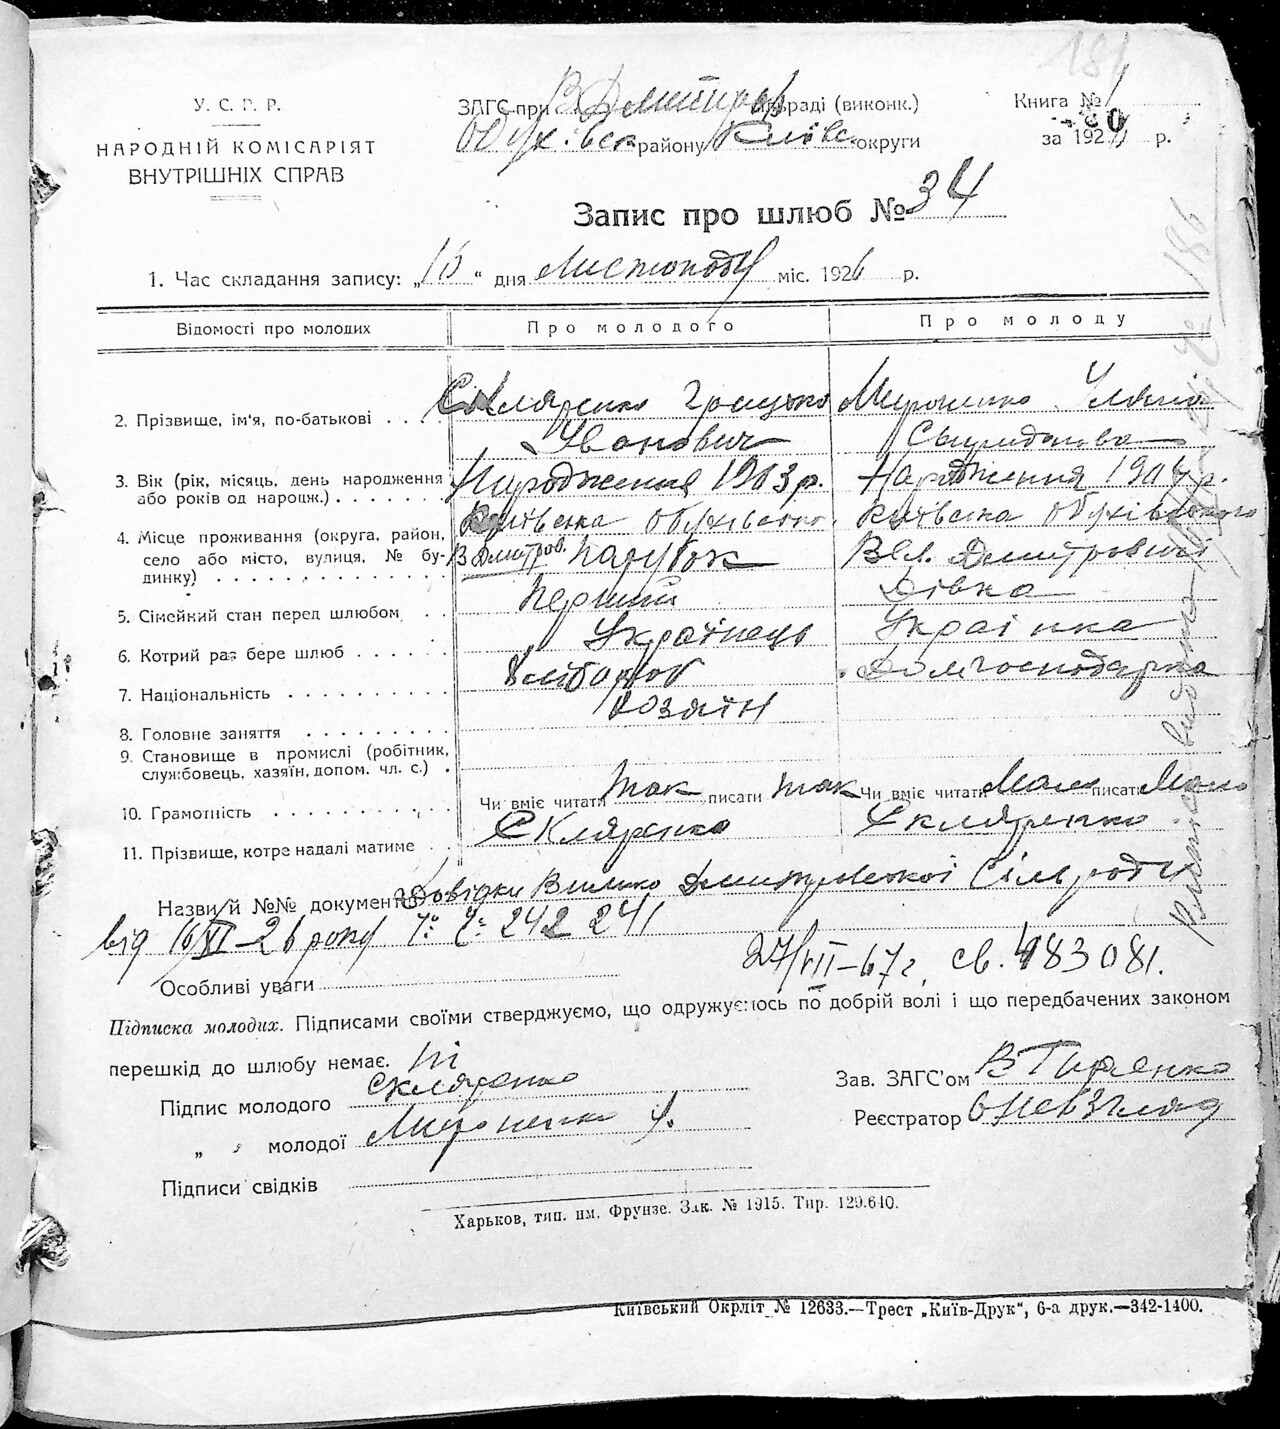 У. С. Р. Р.
НАРОДНІЙ КОМІСАРІЯТ
ВНУТРІШНІХ СПРАВ
181
ЗАГС при В Дмитров сільраді (виконк.)
Обухівськ району Київс округи
Книга № 1
за 1926 р.
Запис про шлюб № 34
1. Час складання запису: „16“ дня Листопаду міс. 1926 р.
Відомості про молодих
Про молодого
Про молоду
2. Прізвище, ім'я, по-батькові
Скляренко Грицько
Іванович
Мироненко Уляна
3. Вік (рік, місяць, день народження або років од народж.)
Народження 1903 р.
Народження 1904 р.
4. Місце проживання (округа, район, село або місто, вулиця, № будинку)
Київська Обухівського
В Дмитров.
Київська Обухівського
Вел. Дмитровичі
5. Сімейний стан перед шлюбом
Парубок
Дівка
6. Котрий раз бере шлюб
Перший
7. Національність
Українець
Українка
8. Головне заняття
Хлібороб
Домгосподарка
9. Становище в промислі (робітник, службовець, хазяїн, допом. чл. с.)
хозяїн
10. Грамотність
Чи вміє читати так писати так
Чи вміє читати Мало писати Мало
11. Прізвище, котре надалі матиме
Скляренко
Скляренко
Назви й №№ документів Довідки Велико Дмитровської Сільради
від 16/XI-26 року 242 241
27/VII-67 г. св. 483081.
Особливі уваги
Підписка молодих. Підписами своїми стверджуємо, що одружуємось по добрій волі і що передбачених законом
перешкід до шлюбу немає.
Підпис молодого Скляренко
„ молодої Мироненко У.
Підписи свідків
Зав. ЗАГС'ом
Реєстратор
Харьков, тип. им. Фрунзе. Зак. № 1915. Тир. 129.640.
Київський Окрліт № 12633.—Трест „Київ-Друк“, 6-а друк.—342-1400.